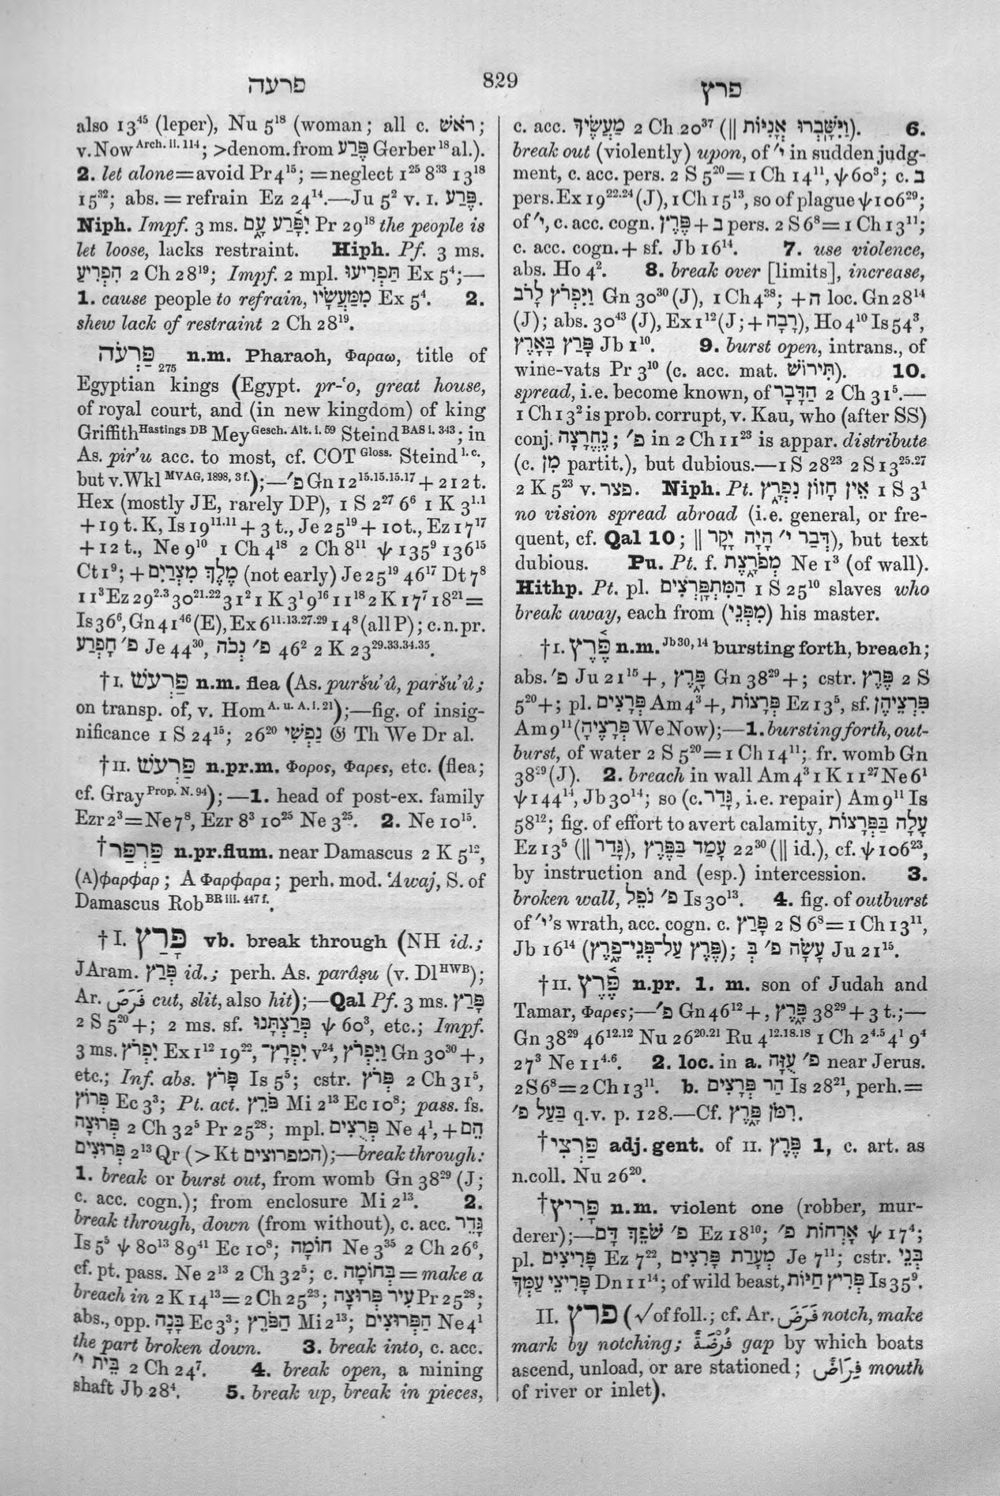 פרעה
829
פרץ
also 13⁴⁵ (leper), Nu 5¹⁸ (woman; all c. ראֹשׁ;
v. Now Arch. ii. 114; >denom. from פֶּרַע Gerber¹⁸ al.).
2. let alone=avoid Pr 4¹⁵; =neglect 1²⁵ 8³³ 13¹⁸
15³²; abs. = refrain Ez 24¹⁴.—Ju 5² v. I. פֶּרַע.
Niph. Impf. 3 ms. יִפָּרַע עָם Pr 29¹⁸ the people is
let loose, lacks restraint. Hiph. Pf. 3 ms.
הִפְרִיעַ 2 Ch 28¹⁹; Impf. 2 mpl. תַּפְרִיעוּ Ex 5⁴;—
1. cause people to refrain, מִמַּעֲשָׂיו Ex 5⁴. 2.
shew lack of restraint 2 Ch 28¹⁹.
פַּרְעֹה 275 n.m. Pharaoh, Φαραω, title of
Egyptian kings (Egypt. pr-ʿo, great house,
of royal court, and (in new kingdom) of king
Griffith Hastings DB Mey Gesch. Alt. i. 59 Steind BAS i. 343; in
As. pir'u acc. to most, cf. COT Gloss. Steind l.c.,
but v. Wkl MVAG, 1898, 3 f.);—פ׳ Gn 12¹⁵·¹⁵·¹⁵·¹⁷ + 212 t.
Hex (mostly JE, rarely DP), 1 S 2²⁷ 6⁶ 1 K 3¹·¹
+ 19 t. K, Is 19¹¹·¹¹ + 3 t., Je 25¹⁹ + 10 t., Ez 17¹⁷
+ 12 t., Ne 9¹⁰ 1 Ch 4¹⁸ 2 Ch 8¹¹ ψ 135⁹ 136¹⁵
Ct 1⁹; + מֶלֶךְ מִצְרַיִם (not early) Je 25¹⁹ 46¹⁷ Dt 7⁸
11³ Ez 29²·³ 30²¹·²² 31² 1 K 3¹ 9¹⁶ 11¹⁸ 2 K 17⁷ 18²¹=
Is 36⁶, Gn 41⁴⁶ (E), Ex 6¹¹·¹³·²⁷·²⁹ 14⁸ (all P); c. n.pr.
פ׳ חָפְרַע Je 44³⁰, פ׳ נְכֹה 46² 2 K 23²⁹·³³·³⁴·³⁵.
†I. פַּרְעֹשׁ n.m. flea (As. puršu'û, paršu'û;
on transp. of, v. Hom A. u. A. i. 21);—fig. of insig-
nificance 1 S 24¹⁵; 26²⁰ נַפְשִׁי 𝔊 Th We Dr al.
†II. פַּרְעֹשׁ n.pr.m. Φορος, Φαρες, etc. (flea;
cf. Gray Prop. N. 94);—1. head of post-ex. family
Ezr 2³=Ne 7⁸, Ezr 8³ 10²⁵ Ne 3²⁵. 2. Ne 10¹⁵.
†פַּרְפַּר n.pr.flum. near Damascus 2 K 5¹²,
(A)φαρφαρ; A Φαρφαρα; perh. mod. ʿAwaj, S. of
Damascus Rob BR iii. 447 f.
†I. פָּרַץ vb. break through (NH id.;
JAram. פְּרַץ id.; perh. As. parâṣu (v. Dl HWB);
Ar. فَرَضَ cut, slit, also hit);—Qal Pf. 3 ms. פָּרַץ
2 S 5²⁰ +; 2 ms. sf. פְּרַצְתָּנוּ ψ 60³, etc.; Impf.
3 ms. יִפְרֹץ Ex 1¹² 19²², יִפְרָץ־ v²⁴, וַיִּפְרֹץ Gn 30³⁰ +,
etc.; Inf. abs. פָּרֹץ Is 5⁵; cstr. פְּרֹץ 2 Ch 31⁵,
פְּרוֹץ Ec 3³; Pt. act. פֹּרֵץ Mi 2¹³ Ec 10⁸; pass. fs.
פְּרוּצָה 2 Ch 32⁵ Pr 25²⁸; mpl. פְּרֻצִים Ne 4¹, + הֵם
פְּרוּצִים 2¹³ Qr (> Kt המפרוצים);—break through:
1. break or burst out, from womb Gn 38²⁹ (J;
c. acc. cogn.); from enclosure Mi 2¹³. 2.
break through, down (from without), c. acc. גָּדֵר
Is 5⁵ ψ 80¹³ 89⁴¹ Ec 10⁸; חוֹמָה Ne 3³⁵ 2 Ch 26⁶,
cf. pt. pass. Ne 2¹³ 2 Ch 32⁵; c. בְּחוֹמָה = make a
breach in 2 K 14¹³=2 Ch 25²³; עִיר פְּרוּצָה Pr 25²⁸;
abs., opp. בָּנָה Ec 3³; הַפֹּרֵץ Mi 2¹³; הַפְּרוּצִים Ne 4¹
the part broken down. 3. break into, c. acc.
בֵּית י״י 2 Ch 24⁷. 4. break open, a mining
shaft Jb 28⁴. 5. break up, break in pieces,
c. acc. מַעֲשֶׂיךָ 2 Ch 20³⁷ (|| וַיִּשָּׁבְרוּ אֳנִיּוֹת). 6.
break out (violently) upon, of י״ in sudden judg-
ment, c. acc. pers. 2 S 5²⁰= 1 Ch 14¹¹, ψ 60³; c. ב
pers. Ex 19²²·²⁴ (J), 1 Ch 15¹³, so of plague ψ 106²⁹;
of י״, c. acc. cogn. פֶּרֶץ + ב pers. 2 S 6⁸= 1 Ch 13¹¹;
c. acc. cogn. + sf. Jb 16¹⁴. 7. use violence,
abs. Ho 4². 8. break over [limits], increase,
וַיִּפְרֹץ לָרֹב Gn 30³⁰ (J), 1 Ch 4³⁸; + ה loc. Gn 28¹⁴
(J); abs. 30⁴³ (J), Ex 1¹² (J; + רָבָה), Ho 4¹⁰ Is 54³,
פָּרַץ בָּאָרֶץ Jb 1¹⁰. 9. burst open, intrans., of
wine-vats Pr 3¹⁰ (c. acc. mat. תִּירוֹשׁ). 10.
spread, i.e. become known, of הַדָּבָר 2 Ch 31⁵.—
1 Ch 13² is prob. corrupt, v. Kau, who (after SS)
conj. נֶחֱרָצָה; פ׳ in 2 Ch 11²³ is appar. distribute
(c. מִן partit.), but dubious.—1 S 28²³ 2 S 13²⁵·²⁷
2 K 5²³ v. פצר. Niph. Pt. אֵין חָזוֹן נִפְרָץ 1 S 3¹
no vision spread abroad (i.e. general, or fre-
quent, cf. Qal 10; || דְּבַר י״ הָיָה יָקָר), but text
dubious. Pu. Pt. f. מְפֹרָצֶת Ne 1³ (of wall).
Hithp. Pt. pl. הַמִּתְפָּרְצִים 1 S 25¹⁰ slaves who
break away, each from (מִפְּנֵי) his master.
†I. פֶּרֶץ n.m. Jb 30, 14 bursting forth, breach;
abs. פ׳ Ju 21¹⁵ +, פָּרֶץ Gn 38²⁹ +; cstr. פֶּרֶץ 2 S
5²⁰ +; pl. פְּרָצִים Am 4³ +, פְּרָצוֹת Ez 13⁵, sf. פִּרְצֵיהֶן
Am 9¹¹ (פְּרָצֶיהָ We Now);—1. bursting forth, out-
burst, of water 2 S 5²⁰= 1 Ch 14¹¹; fr. womb Gn
38²⁹ (J). 2. breach in wall Am 4³ 1 K 11²⁷ Ne 6¹
ψ 144¹⁴, Jb 30¹⁴; so (c. גָּדַר, i.e. repair) Am 9¹¹ Is
58¹²; fig. of effort to avert calamity, עָלָה בַּפְּרָצוֹת
Ez 13⁵ (|| גָּדַר), עָמַד בַּפֶּרֶץ 22³⁰ (|| id.), cf. ψ 106²³,
by instruction and (esp.) intercession. 3.
broken wall, פ׳ נֹפֵל Is 30¹³. 4. fig. of outburst
of י״'s wrath, acc. cogn. c. פָּרַץ 2 S 6⁸= 1 Ch 13¹¹,
Jb 16¹⁴ (פֶּרֶץ עַל־פְּנֵי־פָרֶץ); עָשָׂה פ׳ בְּ Ju 21¹⁵.
†II. פֶּרֶץ n.pr. 1. m. son of Judah and
Tamar, Φαρες;—פ׳ Gn 46¹² +, פָּרֶץ 38²⁹ + 3 t.;—
Gn 38²⁹ 46¹²·¹² Nu 26²⁰·²¹ Ru 4¹²·¹⁸·¹⁸ 1 Ch 2⁴·⁵ 4¹ 9⁴
27³ Ne 11⁴·⁶. 2. loc. in a. פ׳ עֻזָּה near Jerus.
2 S 6⁸=2 Ch 13¹¹. b. הַר פְּרָצִים Is 28²¹, perh.=
בַּעַל פ׳ q.v. p. 128.—Cf. רִמֹּן פֶּרֶץ.
†פַּרְצִי adj.gent. of II. פֶּרֶץ 1, c. art. as
n.coll. Nu 26²⁰.
†פָּרִיץ n.m. violent one (robber, mur-
derer);—פ׳ שֹׁפֵךְ דָּם Ez 18¹⁰; אָרְחוֹת פ׳ ψ 17⁴;
pl. פָּרִיצִים Ez 7²², מְעָרַת פָּרִצִים Je 7¹¹; cstr. בְּנֵי
פָּרִיצֵי עַמְּךָ Dn 11¹⁴; of wild beast, פְּרִיץ חַיּוֹת Is 35⁹.
II. פרץ (√ of foll.; cf. Ar. فَرَضَ notch, make
mark by notching; فُرْضَةٌ gap by which boats
ascend, unload, or are stationed; فِرَاضٌ mouth
of river or inlet).